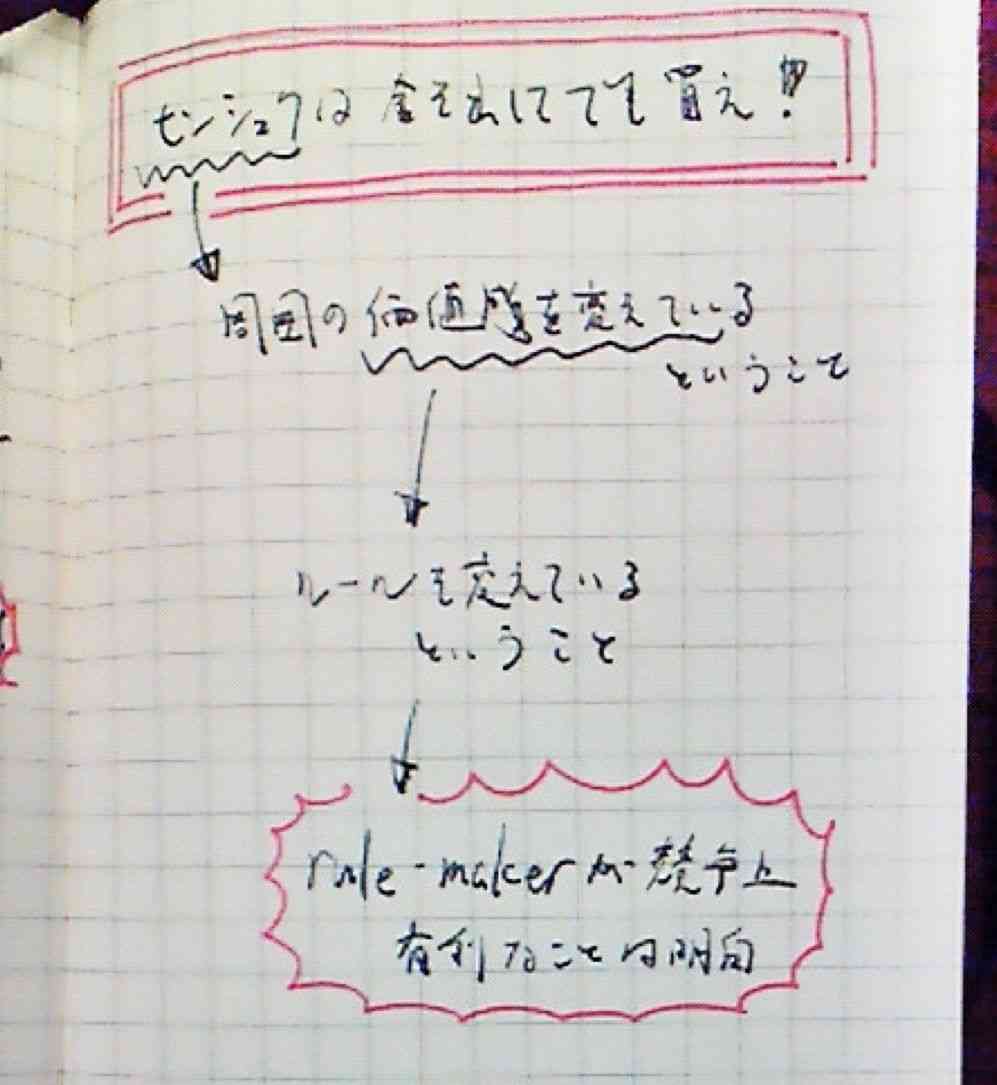 ヒンシュクは金を出してでも買え!!
周囲の価値感を変えている
ということ
ルールを変えている
ということ
rule-makerが競争上
有利なことは明白